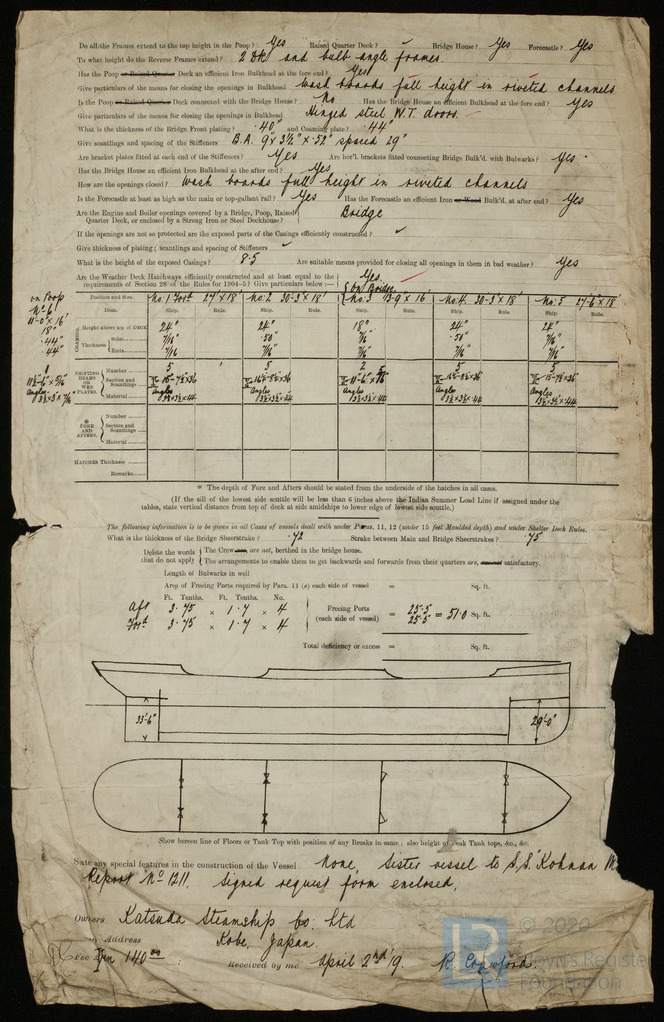 Do all the Frames extend to the top height in the Poop? Yes Raised Quarter Deck? ✓ Bridge House? Yes Forecastle? Yes
To what height do the Reverse Frames extend? 2 Dk and bulb angle frames.
Has the Poop or Raised Quarter Deck an efficient Iron Bulkhead at the fore end? Yes
Give particulars of the means for closing the openings in Bulkhead Wash boards full height in riveted channels
Is the Poop or Raised Quarter Deck connected with the Bridge House? No Has the Bridge House an efficient Bulkhead at the fore end? Yes
Give particulars of means for closing the openings in Bulkhead Hinged steel W.T. doors.
What is the thickness of the Bridge Front plating? .40" and Coaming plate? .44"
Give scantlings and spacing of the Stiffeners B.A. 9" x 3½" x .52" spaced 29"
Are bracket plates fitted at each end of the Stiffeners? Yes Are hor'l. brackets fitted connecting Bridge Bulk'd. with Bulwarks? Yes
Has the Bridge House an efficient Iron Bulkhead at the after end? Yes
How are the openings closed? Wash boards full height in riveted channels
Is the Forecastle at least as high as the main or top-gallant rail? Yes Has the Forecastle an efficient Iron or Wood Bulk'd. at after end? Yes
Are the Engine and Boiler openings covered by a Bridge, Poop, Raised Quarter Deck, or enclosed by a Strong Iron or Steel Deckhouse? Bridge
If the openings are not so protected are the exposed parts of the Casings efficiently constructed? ✓
Give thickness of plating; scantlings and spacing of Stiffeners ✓
What is the height of the exposed Casings? 8.5 Are suitable means provided for closing all openings in them in bad weather? Yes
Are the Weather Deck Hatchways efficiently constructed and at least equal to the requirements of Section 28 of the Rules for 1904-5? Give particulars below:— Yes.
on Poop
No 6
11'-0" x 16'
18"
.44"
.44"
Position and Size. No: 1 Forwd 27' x 18' No: 2 30-3 x 18' No: 3 on Bridge 13-9 x 16' No: 4. 30-3 x 18' No: 5 27-6 x 18'
Item. Ship. Rule. Ship. Rule. Ship. Rule. Ship. Rule. Ship. Rule.
COAMING. Height above top of DECK 24" 24" 18" 24" 24"
Thickness Sides 7/16" .50" 7/16" .50" 7/16"
Ends 7/16 7/16" 7/16" 7/16" 7/16"
SHIFTING BEAMS OR WEB PLATES. Number 5 5 2 5 5
Section and Scantlings
Angles Angles Angles
Material
* FORE AND AFTERS. Number
Section and Scantlings
Material
HATCHES Thickness
Remarks
* The depth of Fore and Afters should be stated from the underside of the hatches in all cases.
(If the sill of the lowest side scuttle will be less than 6 inches above the Indian Summer Load Line if assigned under the
tables, state vertical distance from top of deck at side amidships to lower edge of lowest side scuttle.)
The following information is to be given in all Cases of vessels dealt with under Paras. 11, 12 (under 15 feet Moulded depth) and under Shelter Deck Rules.
What is the thickness of the Bridge Sheerstrake? .72 Strake between Main and Bridge Sheerstrakes? .75
Delete the words that do not apply The Crew are, are not, berthed in the bridge house.
The arrangements to enable them to get backwards and forwards from their quarters are, are not satisfactory.
Length of Bulwarks in well
Area of Freeing Ports required by Para. 11 (e) each side of vessel = Sq. ft.
Ft. Tenths. Ft. Tenths. No.
Aft 3.75 x 1.7 x 4
Forwd 3.75 x 1.7 x 4
Freeing Ports (each side of vessel) = 25.5 25.5 = 51.0 Sq. ft.
Total deficiency or excess = Sq. ft.
33'-6"
29'-0"
Show hereon line of Floors or Tank Top with position of any Breaks in same; also height of Peak Tank tops, &c., &c.
State any special features in the construction of the Vessel None, Sister vessel to S.S. "Kohnan M
Report No 1211. Signed request form enclosed.
Owners Katsuda Steamship Co. Ltd
Address Kobe, Japan.
Fee Yen 140.00 Received by me April 2nd '19. R. Crawford.
© 2020
Lloyd's Register
Foundation